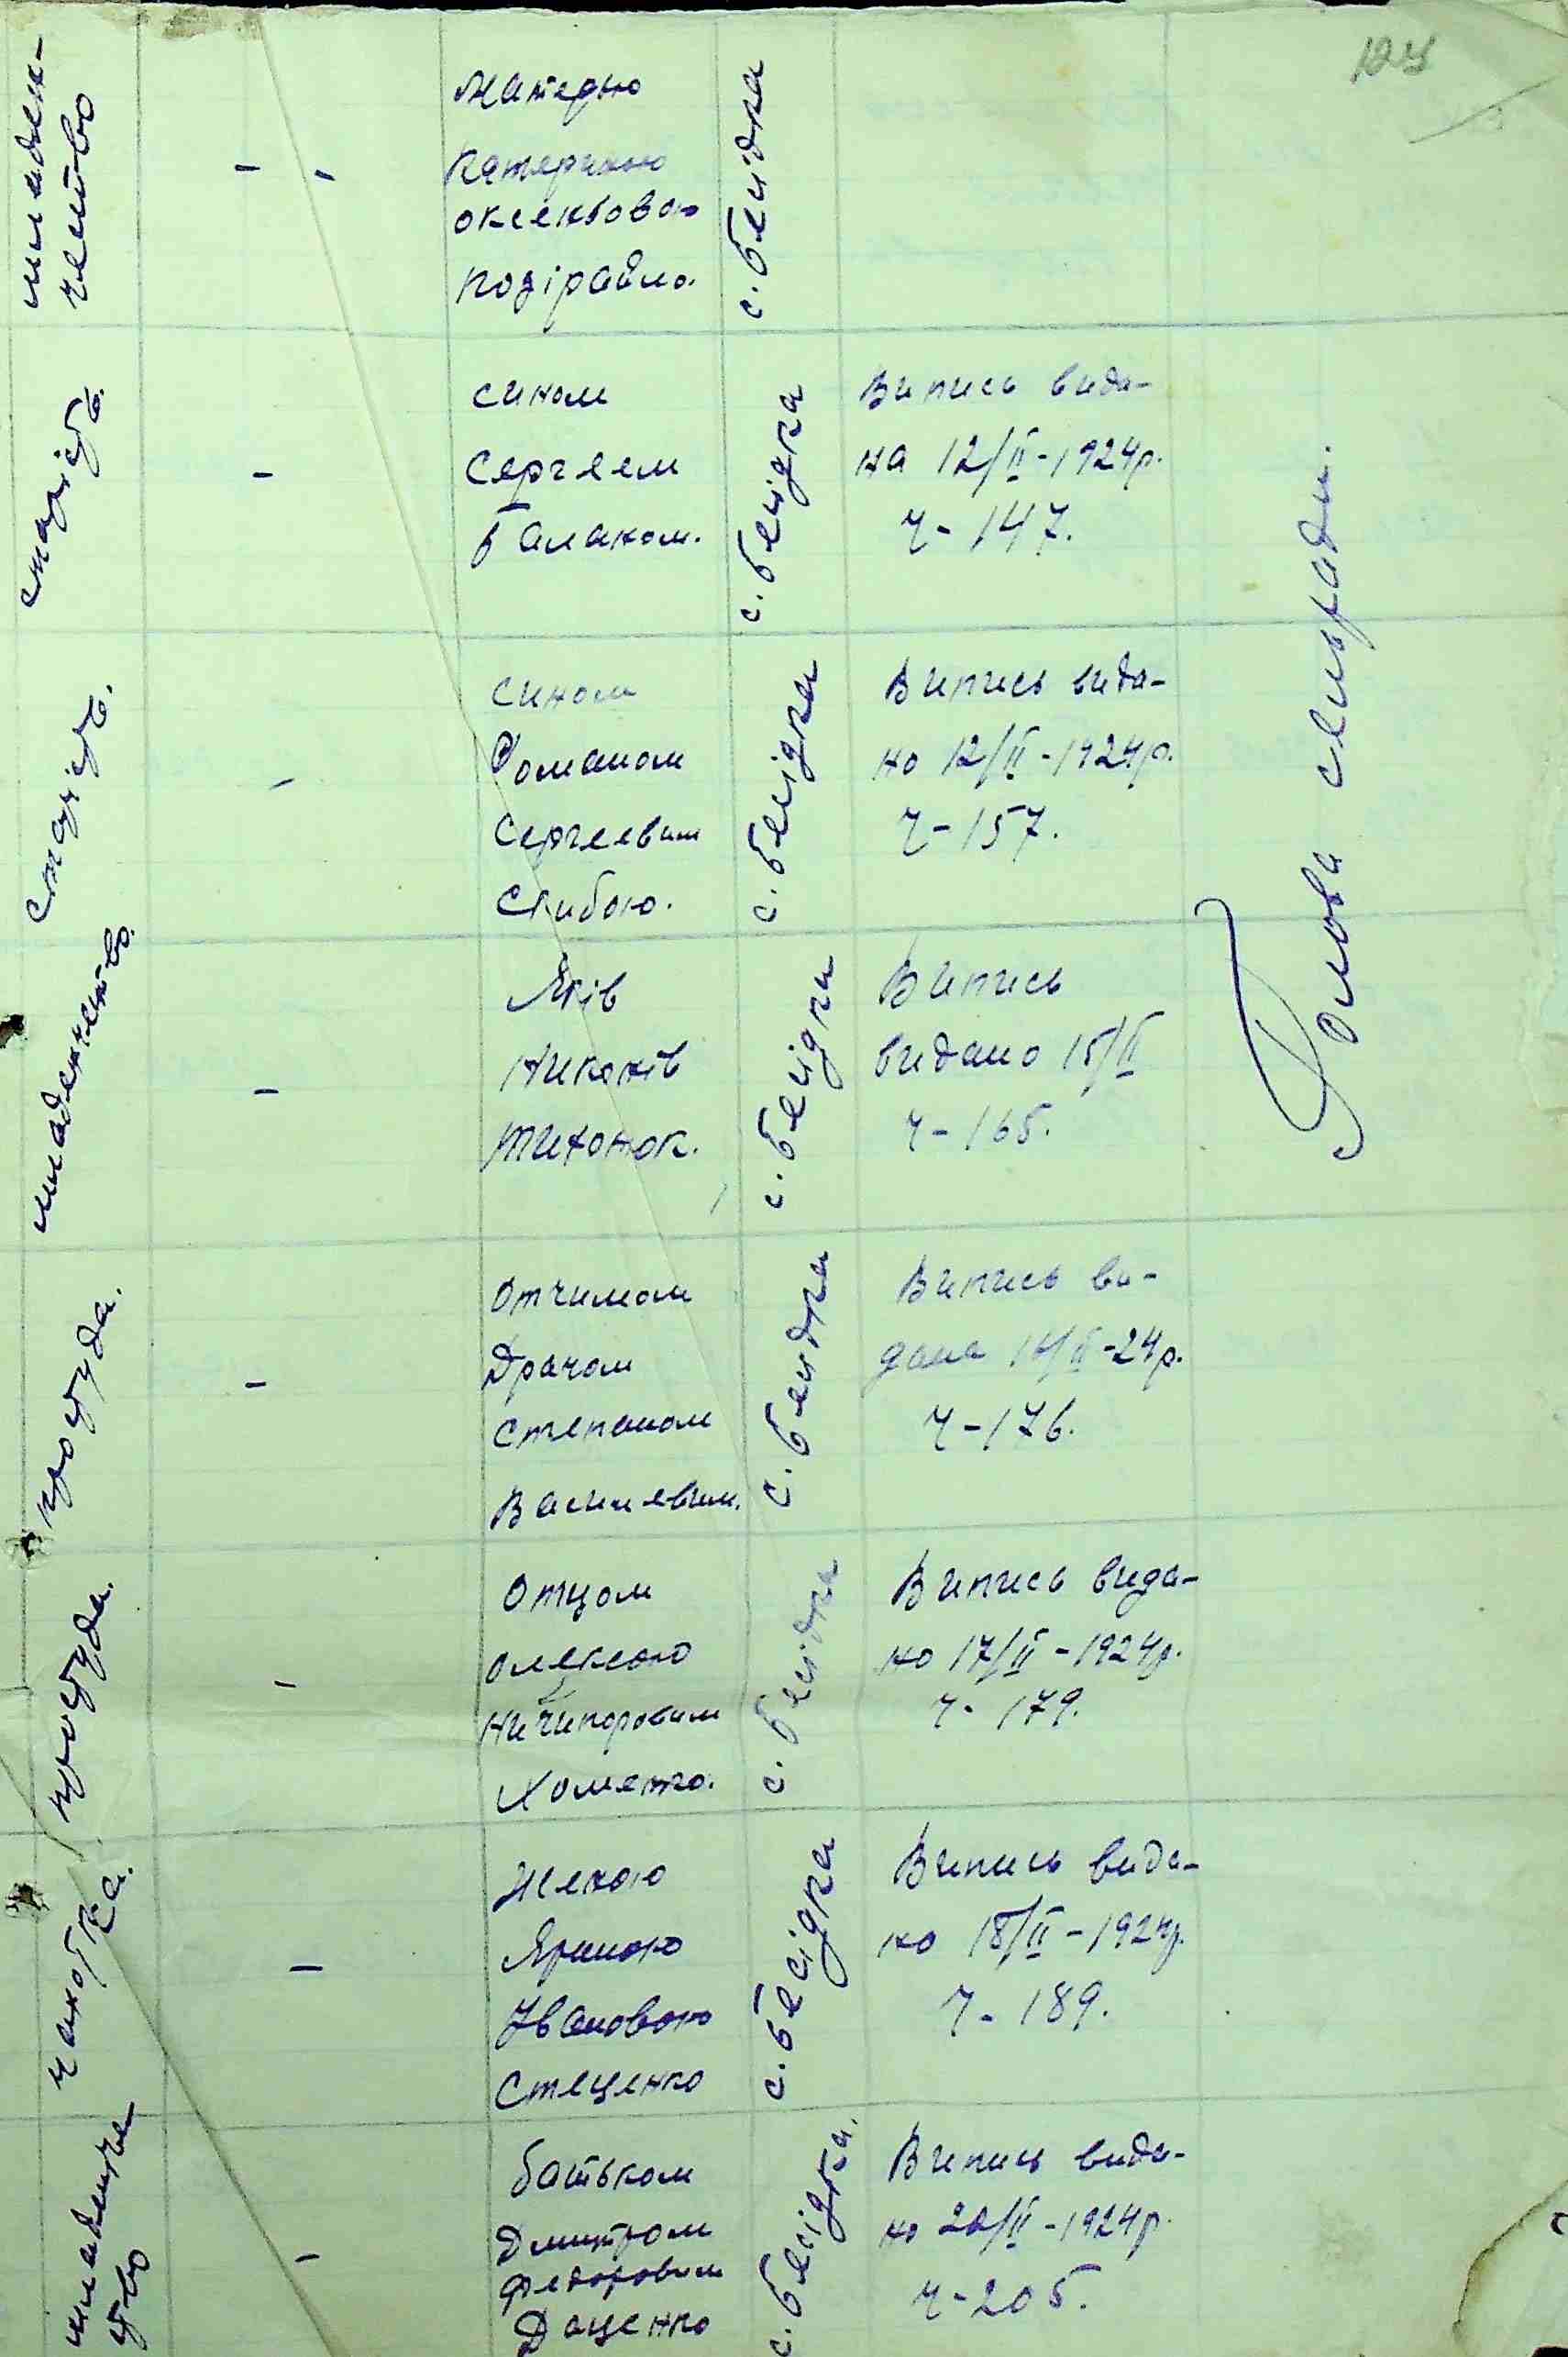 124
младен-
чество
Матерью
Катериною
Оксентовою
с. Бесидка
старість.
сином
Сергеем
Балаком.
с. Бесідка
Випись вида-
на 12/II-1924р.
Ч-147.
старість.
сином
Романом
Сергеевим
Скибою.
с. Бесідка
Випись вида-
но 12/II-1924р.
Ч-157.
младенчество.
Яків
Никонів
Тихонюк.
с. Бесідка
Випись
видано 15/II
Ч-165.
простуда.
Отчимом
Драчом
Степаном
Василевим.
с. Бесидка
Випись ви-
дана /II-24р.
Ч-176.
простуда.
Отцом
Олексою
Ничипоровим
Хоменко.
с. Бесидка
Випись вида-
но 17/II-1924р.
Ч-179.
чахотка.
Женою
Яриною
Івановою
Стеценко
с. Бесідка
Випись вида-
но 18/II-1924р.
Ч-189.
младенче-
ство
батьком
Дмитром
Федоровим
Даценко
с. Бесідка.
Випись вида-
но 20/II-1924р.
Ч-205.
Голова сельради.